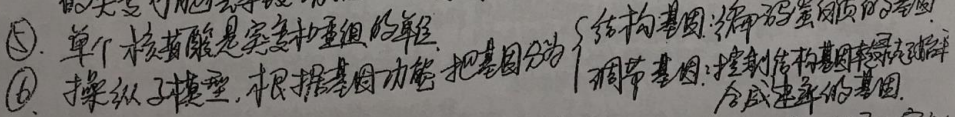 ⑤. 单个核苷酸是突变和重组的单位.
⑥ 操纵子模型,根据基因功能把基因分为
结构基因:编码蛋白质的基因.
调节基因:控制结构基因转录起始和
合成速率的基因.